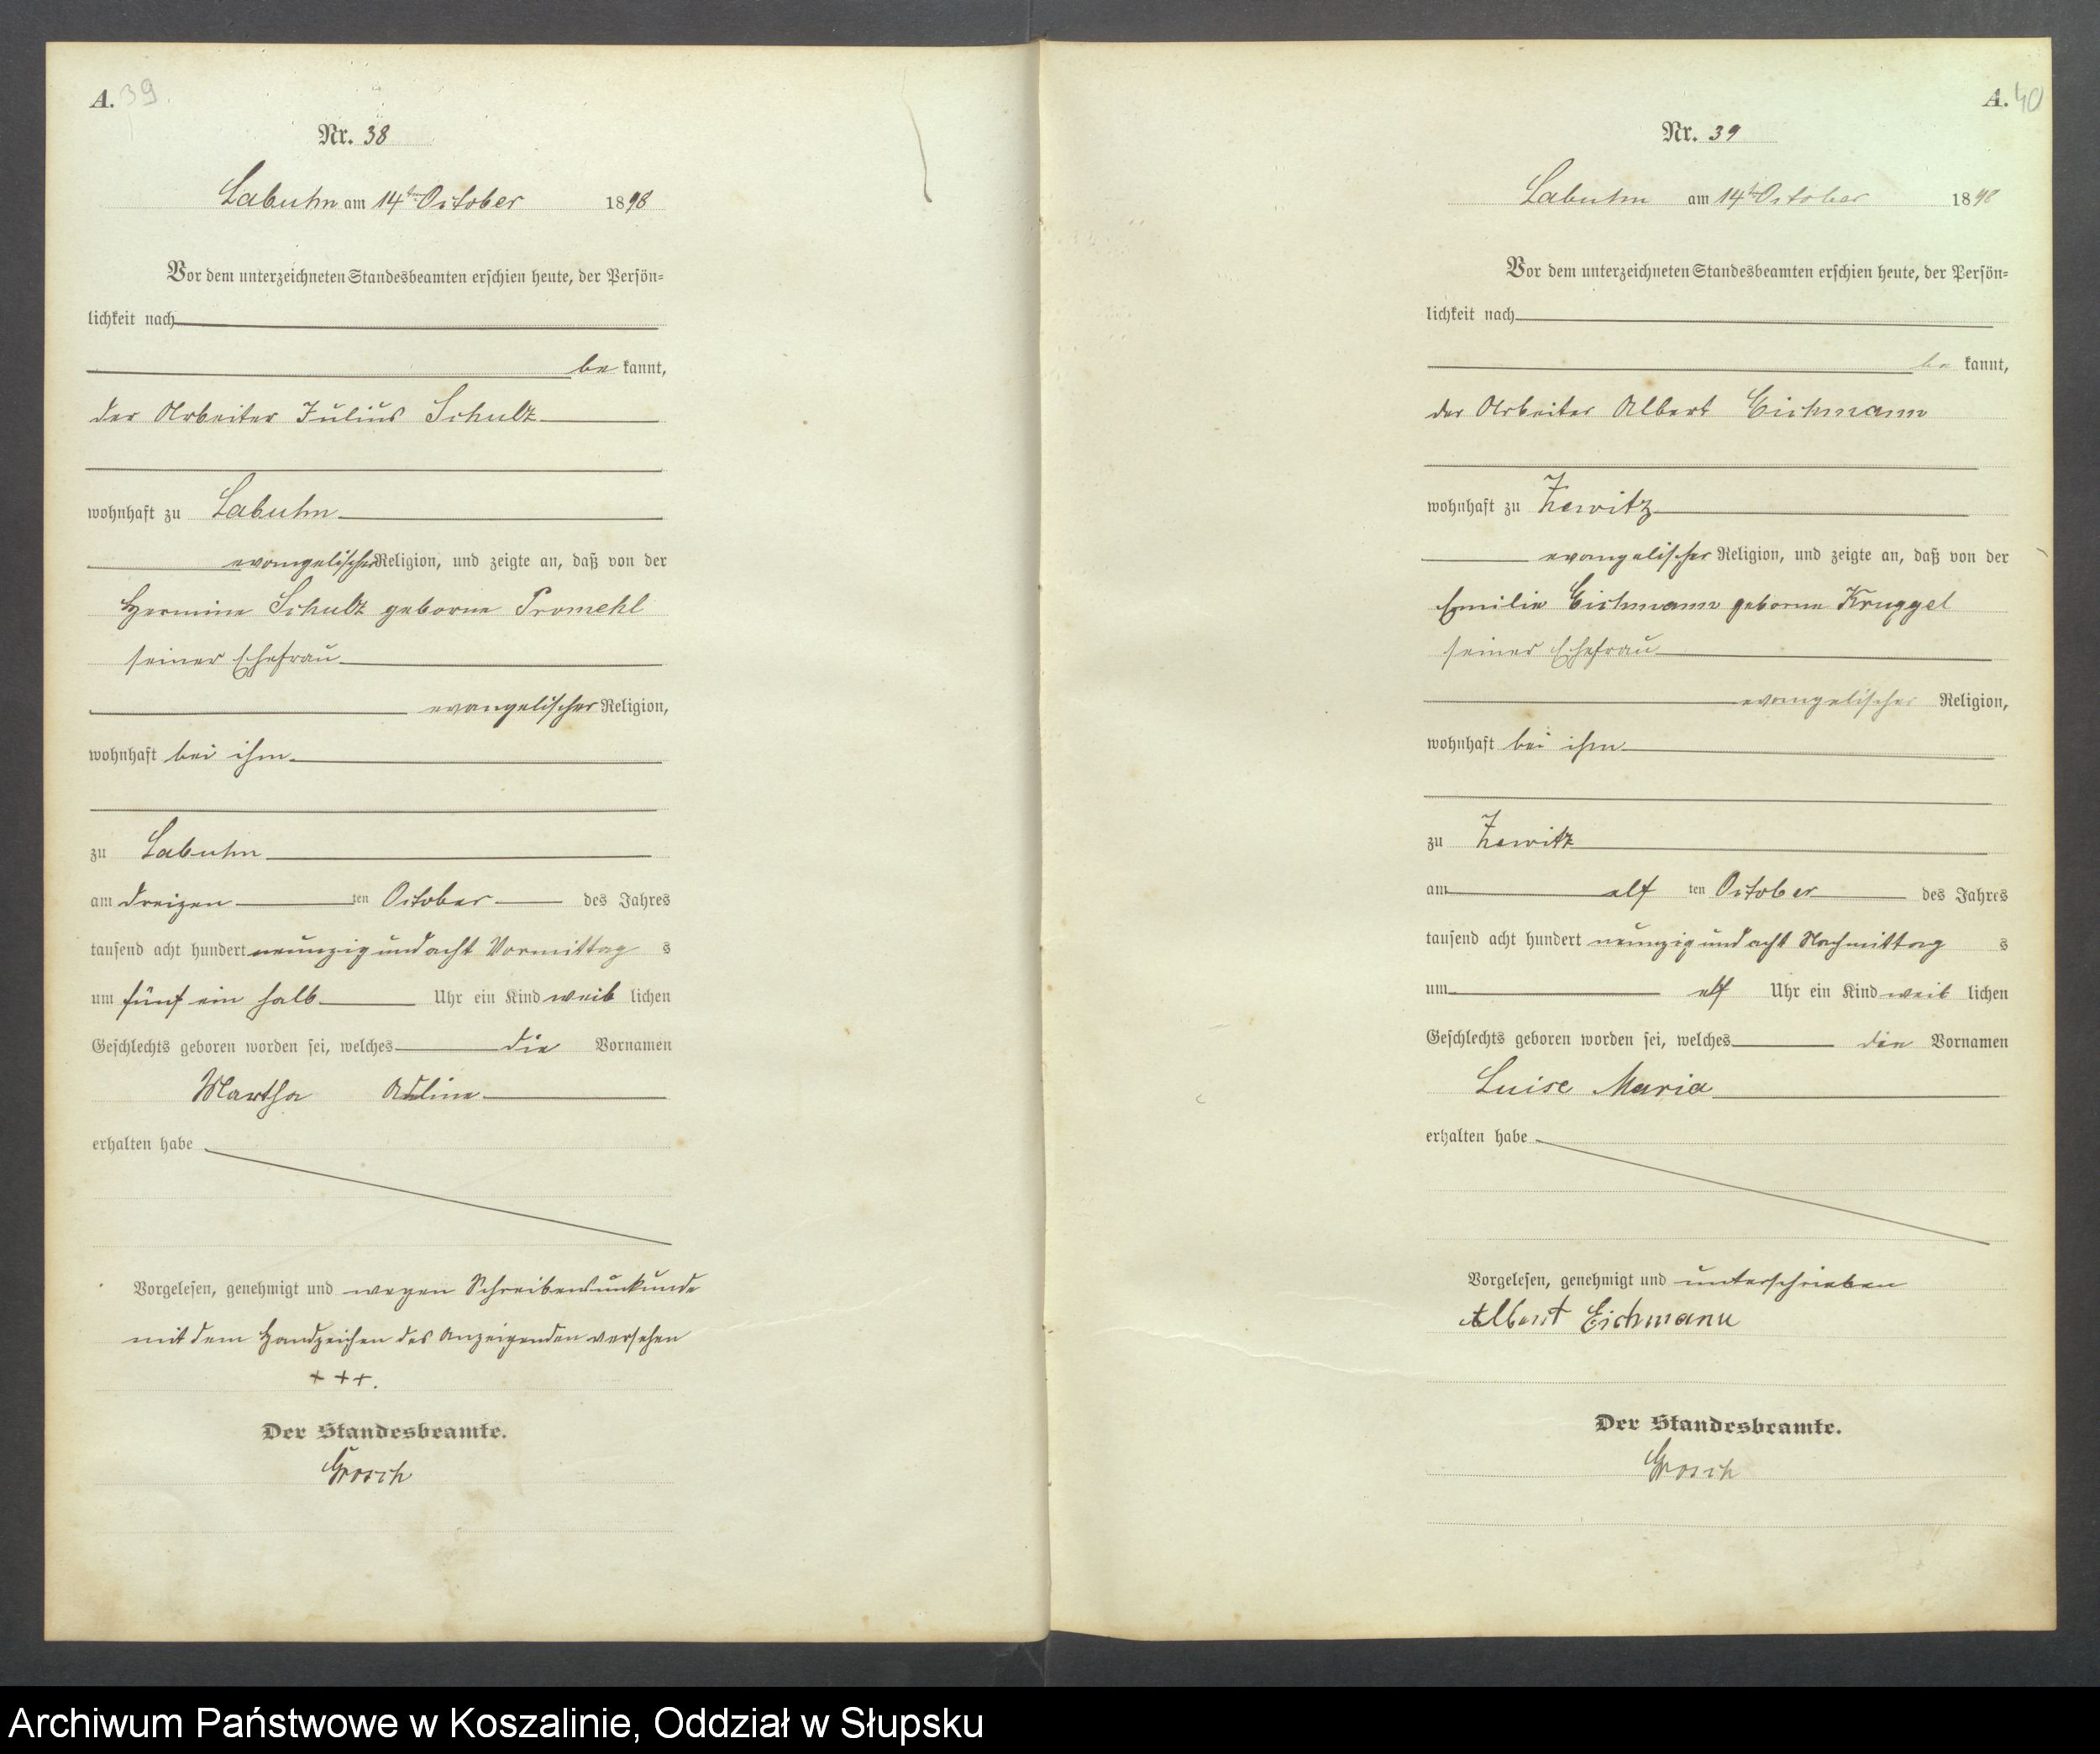 A. 39.
Nr. 38
Labuhn am 14ten October 1898
Vor dem unterzeichneten Standesbeamten erschien heute, der Persön=
lichkeit nach
be kannt,
der Arbeiter Julius Schulz
wohnhaft zu Labuhn
evangelischer Religion, und zeigte an, daß von der
Hermine Schulz geborne Promehl
seiner Ehefrau
evangelischer Religion,
wohnhaft bei ihm
zu Labuhn
am dreizen ten October des Jahres
tausend acht hundert neunzig und acht Vormittag s
um fünf ein halb Uhr ein Kind weib lichen
Geschlechts geboren worden sei, welches die Vornamen
Martha
erhalten habe
Vorgelesen, genehmigt und wegen Schreibensunkunde
mit dem Handzeichen des Anzeigenden versehen
+ + +.
Der Standesbeamte.
Grosch
A. 40
Nr. 39
Labuhn am 14ten October 1898
Vor dem unterzeichneten Standesbeamten erschien heute, der Persön=
lichkeit nach
be kannt,
der Arbeiter Albert Eichmann
wohnhaft zu Zewitz
evangelischer Religion, und zeigte an, daß von der
Emilie Eichmann geborne Kruggel
seiner Ehefrau
evangelischer Religion,
wohnhaft bei ihm
zu Zewitz
am elf ten October des Jahres
tausend acht hundert neunzig und acht Nachmittag s
um elf Uhr ein Kind weib lichen
Geschlechts geboren worden sei, welches die Vornamen
Luise Maria
erhalten habe
Vorgelesen, genehmigt und unterschrieben
Albert Eichmann
Der Standesbeamte.
Grosch
Archiwum Państwowe w Koszalinie, Oddział w Słupsku